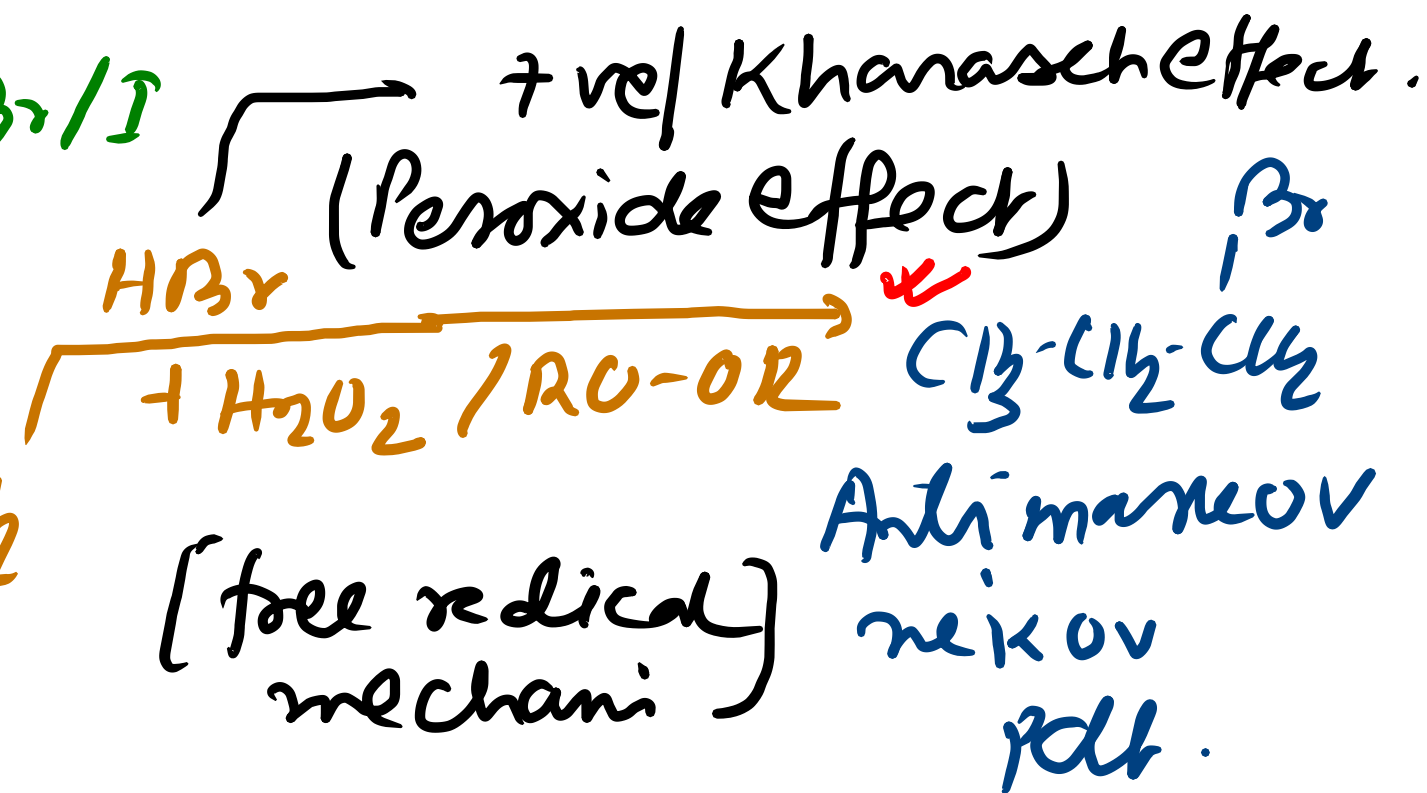 Br/I
+ve/ Kharasch effect.
(Peroxide effect)
HBr
+ H2O2 / RO-OR
Br
CH3-CH2-CH2
Anti markov
nekov
pdt.
[free redical
mechani]